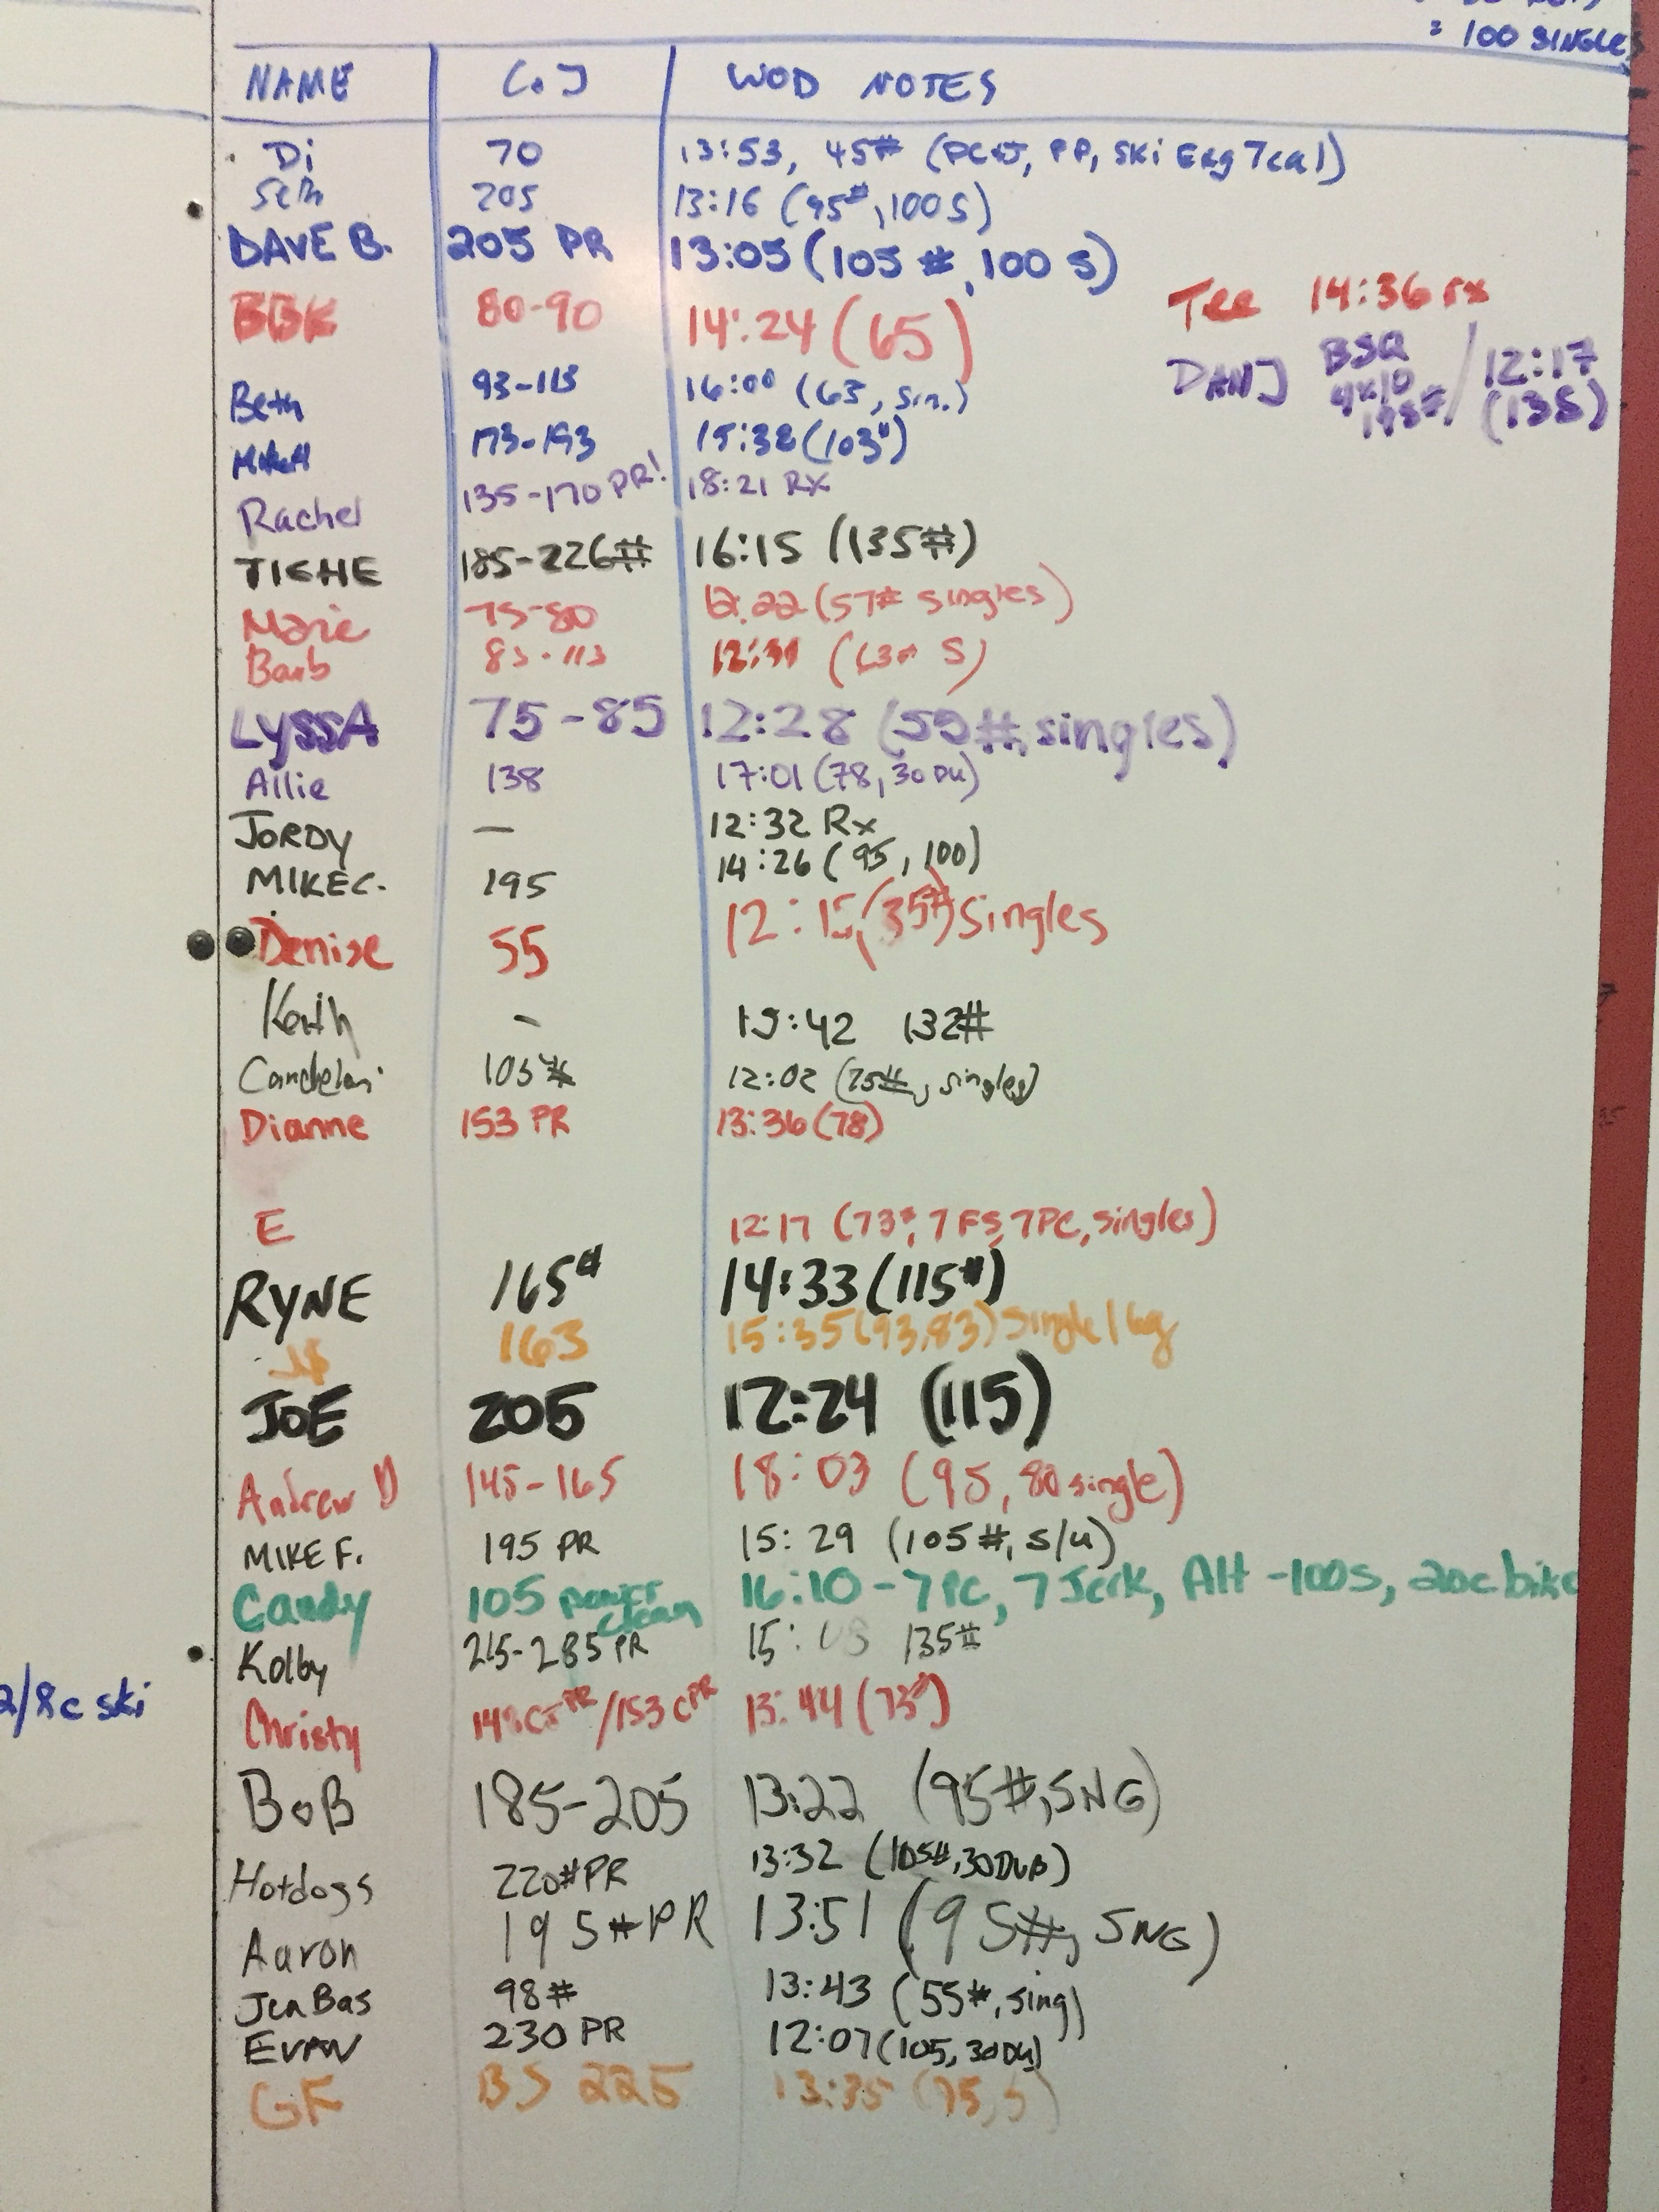 = 100 SINGLES
NAME C.J WOD NOTES
Di 70 13:53, 45# (PC+J, PP, SKi Erg 7cal)
Seth 205 13:16 (95#, 100 S)
DAVE B. 205 PR 13:05 (105 #, 100 S)
BBK 80-90 14:24 (65)
Tee 14:36 rx
DANJ BSQ 4x10 / 12:17 (135)
Beth 93-113 16:00 (63, Sin.)
MikeH 173-193 15:38 (103#)
Rachel 135-170 PR! 18:21 RX
TIGHE 185-226# 16:15 (135#)
Marie 75-80 12:22 (57# singles)
Barb 83-113 (63# S)
LYSSA 75-85 12:28 (55#, singles)
Allie 138 17:01 (78, 30 DU)
JORDY — 12:32 Rx
MIKE C. 195 14:26 (95, 100)
Denise 55 12:15 (35#) Singles
Keith - 15:42 132#
105# 12:02 (75#, singles)
Dianne 153 PR 13:36 (78)
E 12:17 (73#, 7 FS, 7PC, singles)
RYNE 165# 14:33 (115#)
J$ 163 15:35 (93,83) Single leg
JOE 205 12:24 (115)
Andrew D 145-165 18:03 (95, 80 single)
MIKE F. 195 PR 15:29 (105#, S/u)
Candy 105 power clean 16:10 - 7 PC, 7 Jerk, Alt -100s, 20c bike
Kolby 215-285 PR 15: 135#
/8c ski
Christy 148 CJ PR/153 C PR 13:44 (73#)
BOB 185-205 13:22 (95#, SNG)
Hotdogs 220# PR 13:32 (105#, 30 DUB)
Aaron 195# PR 13:51 (95#, SNG)
Jen Bas 98# 13:43 (55#, sing)
EVAN 230 PR 12:07 (105, 30 DU)
GF BS 225 13:35 (75, S)